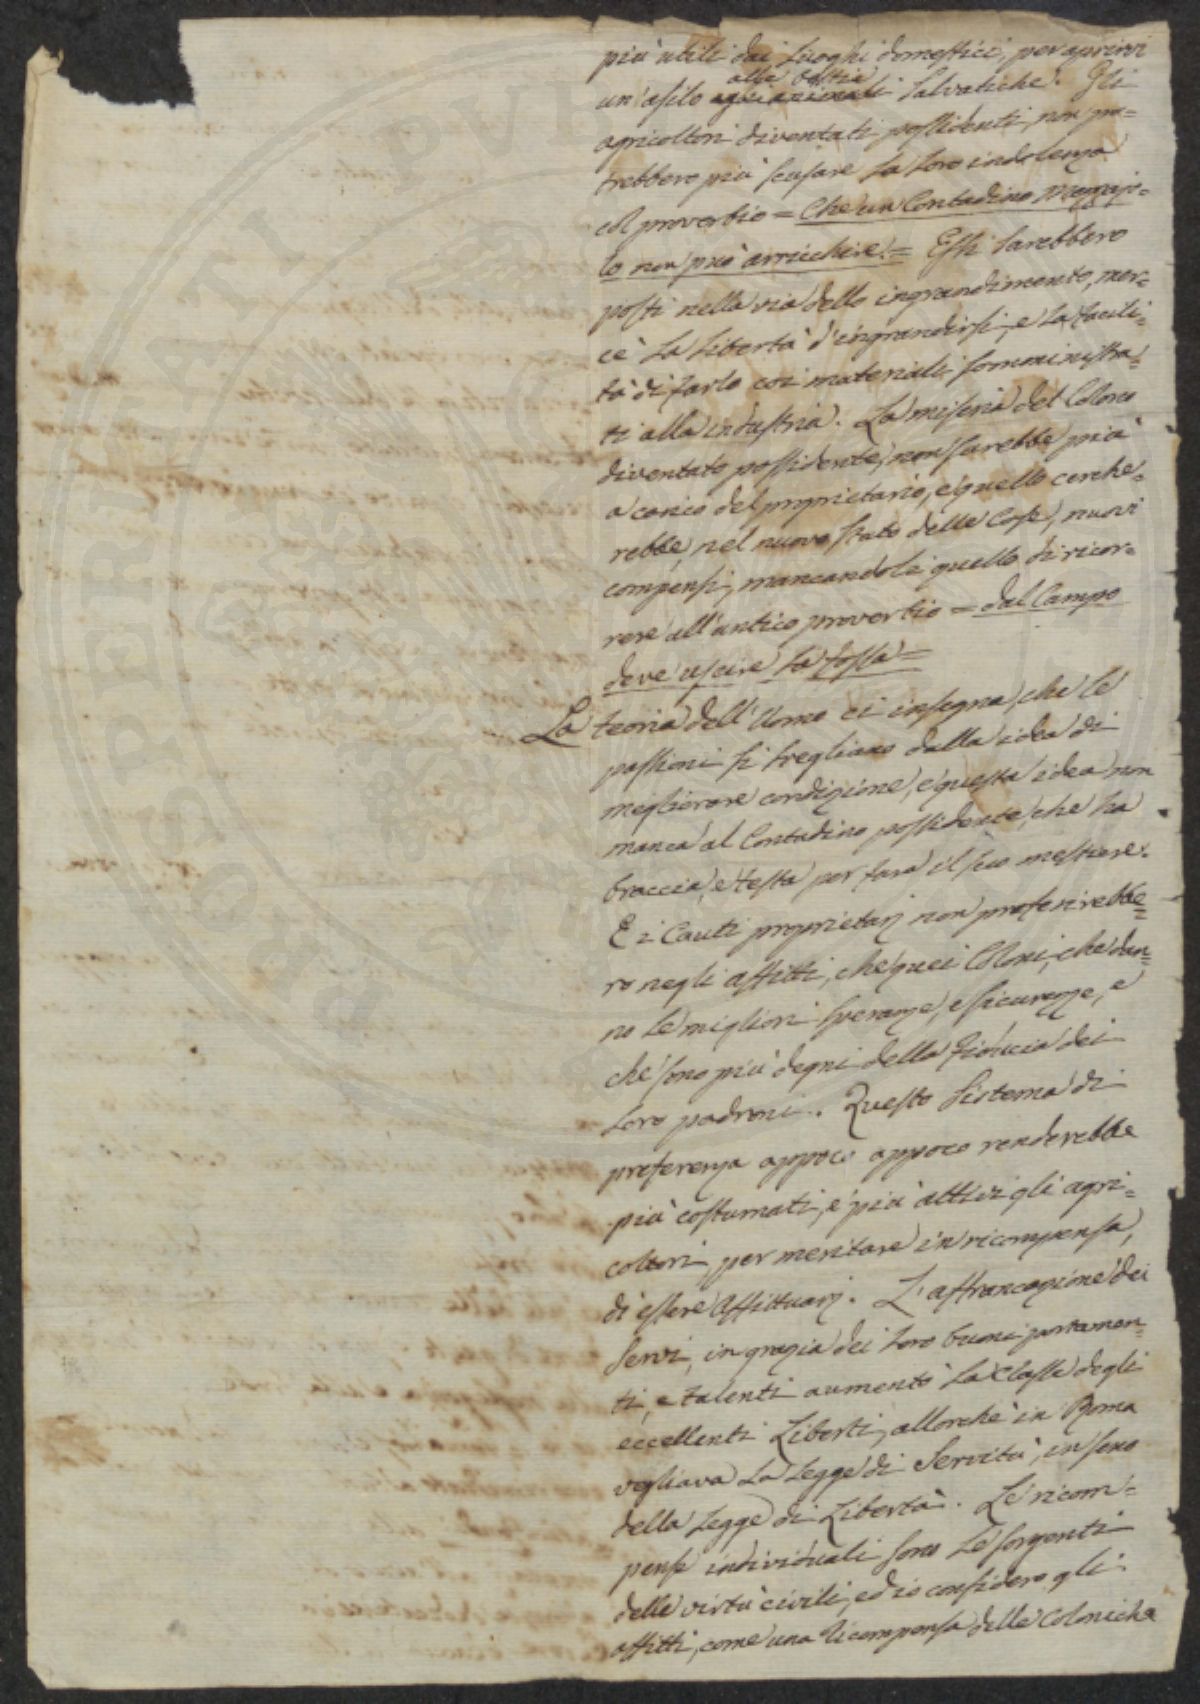 più utili dai Luoghi domestici, per aprirvi
alle bestie
un'asilo agli animali Salvatiche. Gli
agricoltori diventati possidenti, non po=
trebbero più scusare La Loro indolenza
col proverbio = Che un Contadino Mezzajo=
lo non può arricchire. = Essi Sarebbero
posti nella via dello ingrandimento, mer=
cè La Libertà d'ingrandirsi, e La facili=
tà di farlo coi materiali somministra=
ti alla industria. La miseria del Colono
diventato possidente, non sarebbe più
a carico del proprietario, e quello cerche=
rebbe, nel nuovo Stato delle Cose, nuovi
compensi, mancandole quello di ricor=
rere all'antico proverbio = dal Campo
deve uscire La fossa =
La teoria dell'Uomo ci insegna, che le
passioni si svegliano dalla idea di
migliorare condizione, e questa idea non
manca al Contadino possidente, che ha
braccia, e testa per fare il suo mestiere.
E i Cauti proprietarj non preferirebbe=
ro negli affitti, che quei Coloni, che dan=
no Le migliori Speranze, e sicurezze, e
che sono più degni della fiducia dei
Loro padroni. Questo Sistema di
preferenza appoco appoco renderebbe
più costumati, e più attivi gli agri=
coltori per meritare in ricompensa,
di essere Affittuarj. L'affrancazione dei
Servi, in grazia dei Loro buoni portamen=
ti, e talenti aumentò La Classe degli
eccellenti Liberti, allorchè in Roma
vegliava La Legge di Servitù, in seno
della Legge di Libertà. Le ricom=
pense individuali sono Le sorgenti
delle virtù civili, ed io considero gli
affitti, come una Ricompensa delle Coloniche